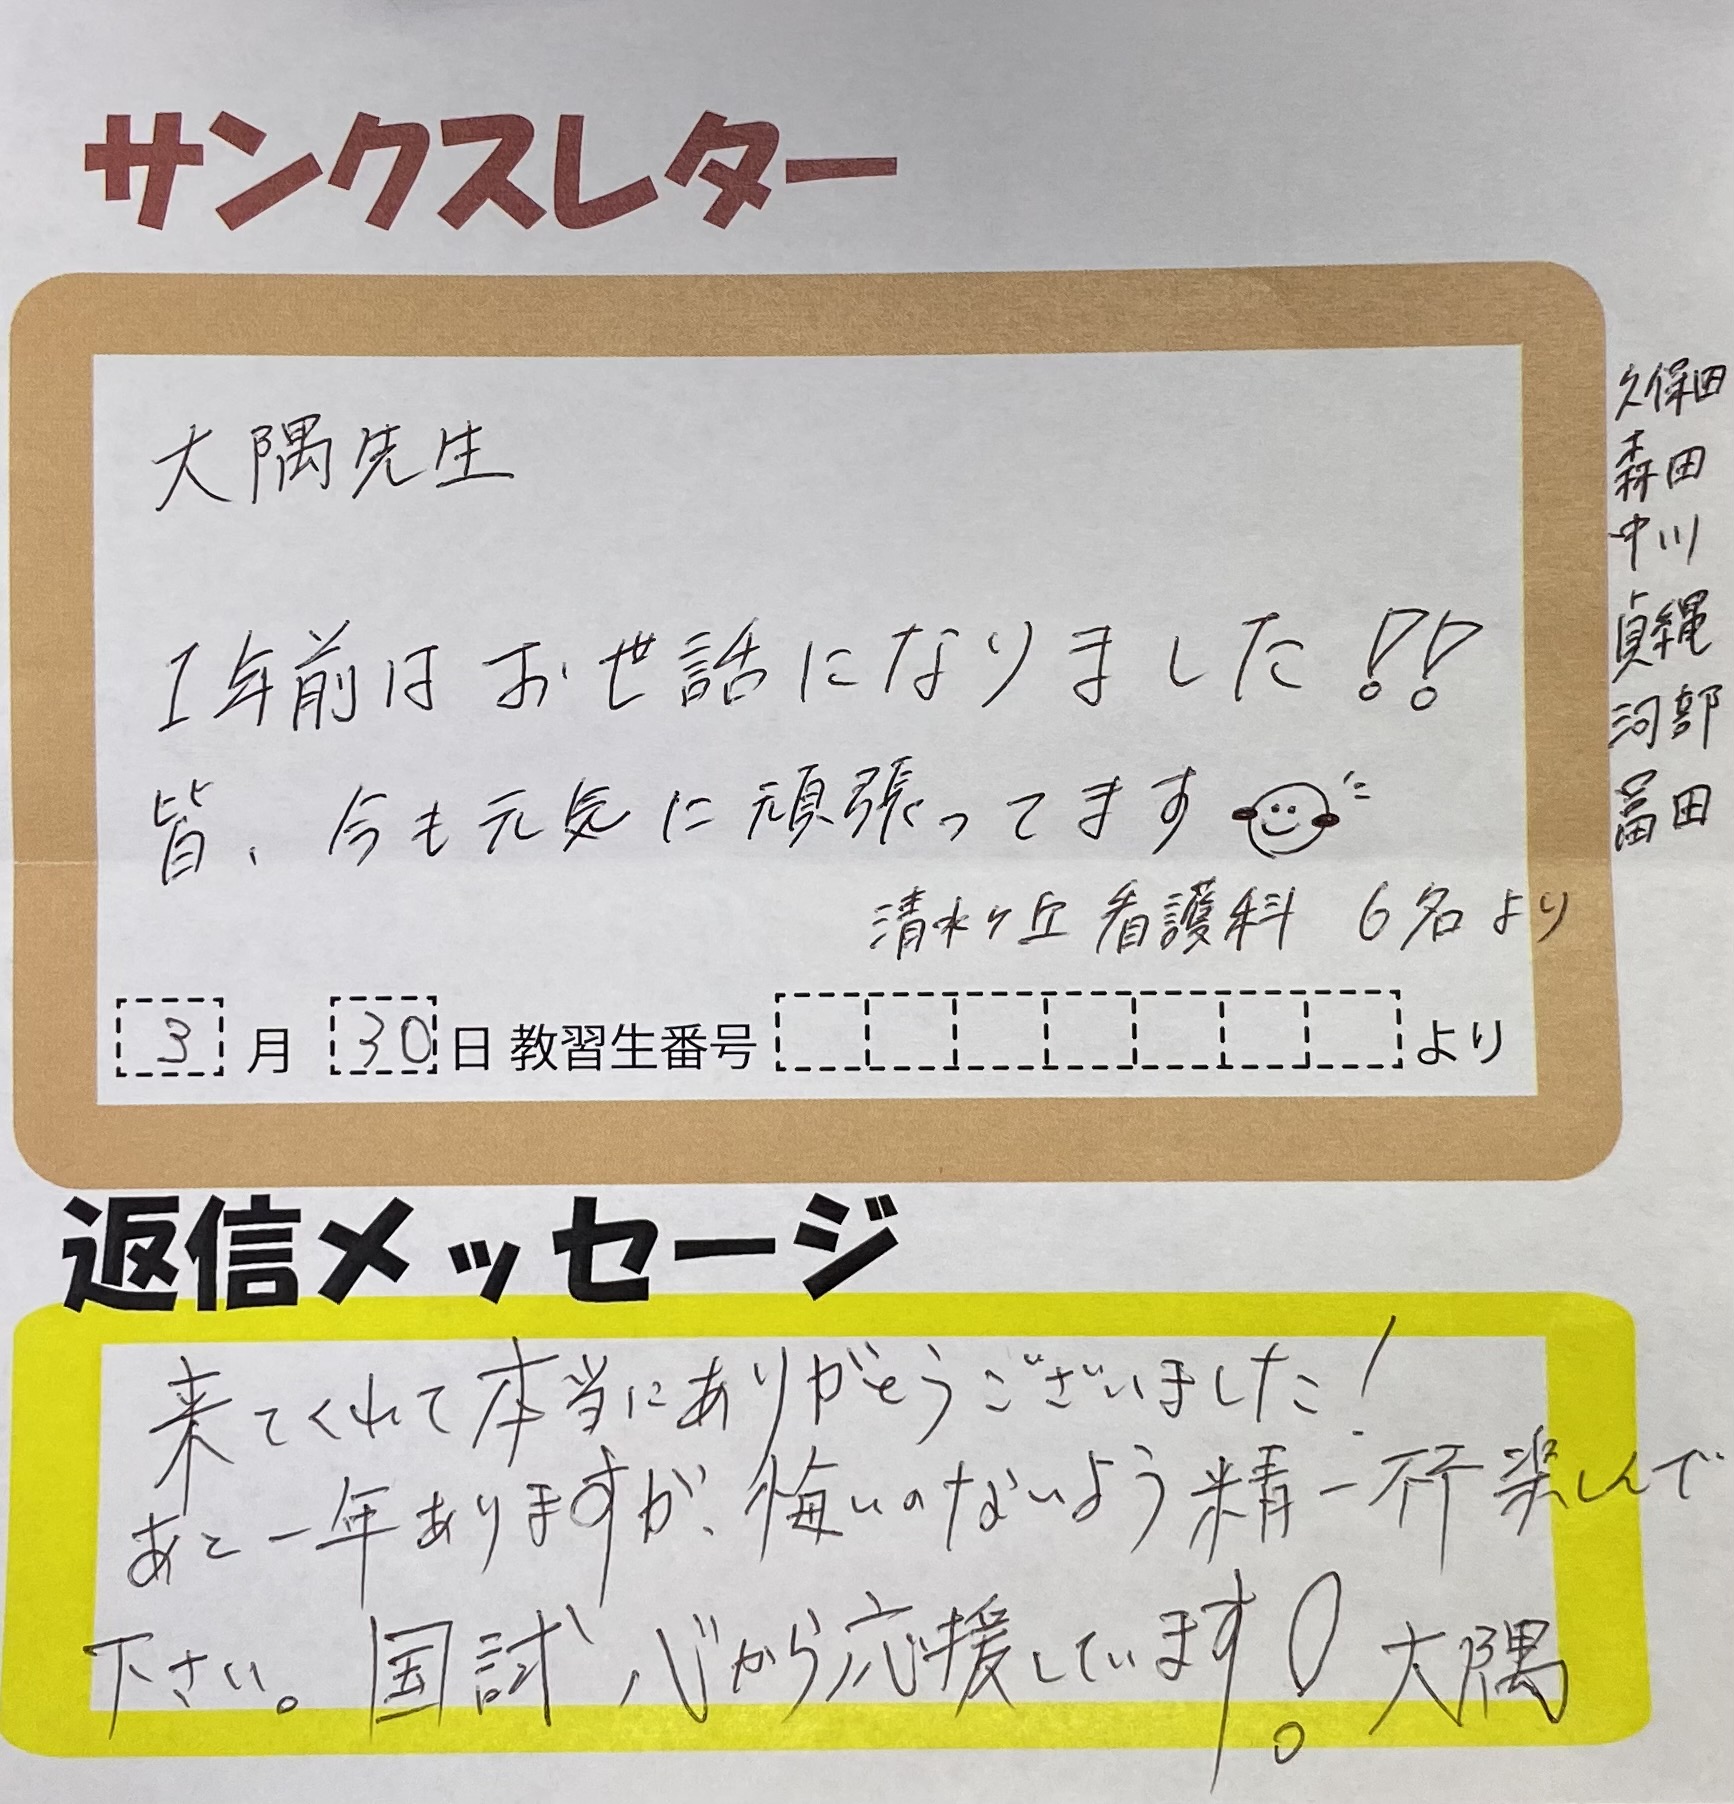 サンクスレター
大隅先生
1年前はお世話になりました!!
皆、今も元気に頑張ってます
清水ヶ丘 看護科 6名より
3月 30日 教習生番号 より
久保田
森田
中川
貞縄
河部
冨田
返信メッセージ
来てくれて本当にありがとうございました!
あと一年ありますが、悔いのないよう精一杯楽しんで
下さい。国試 心から応援しています! 大隅